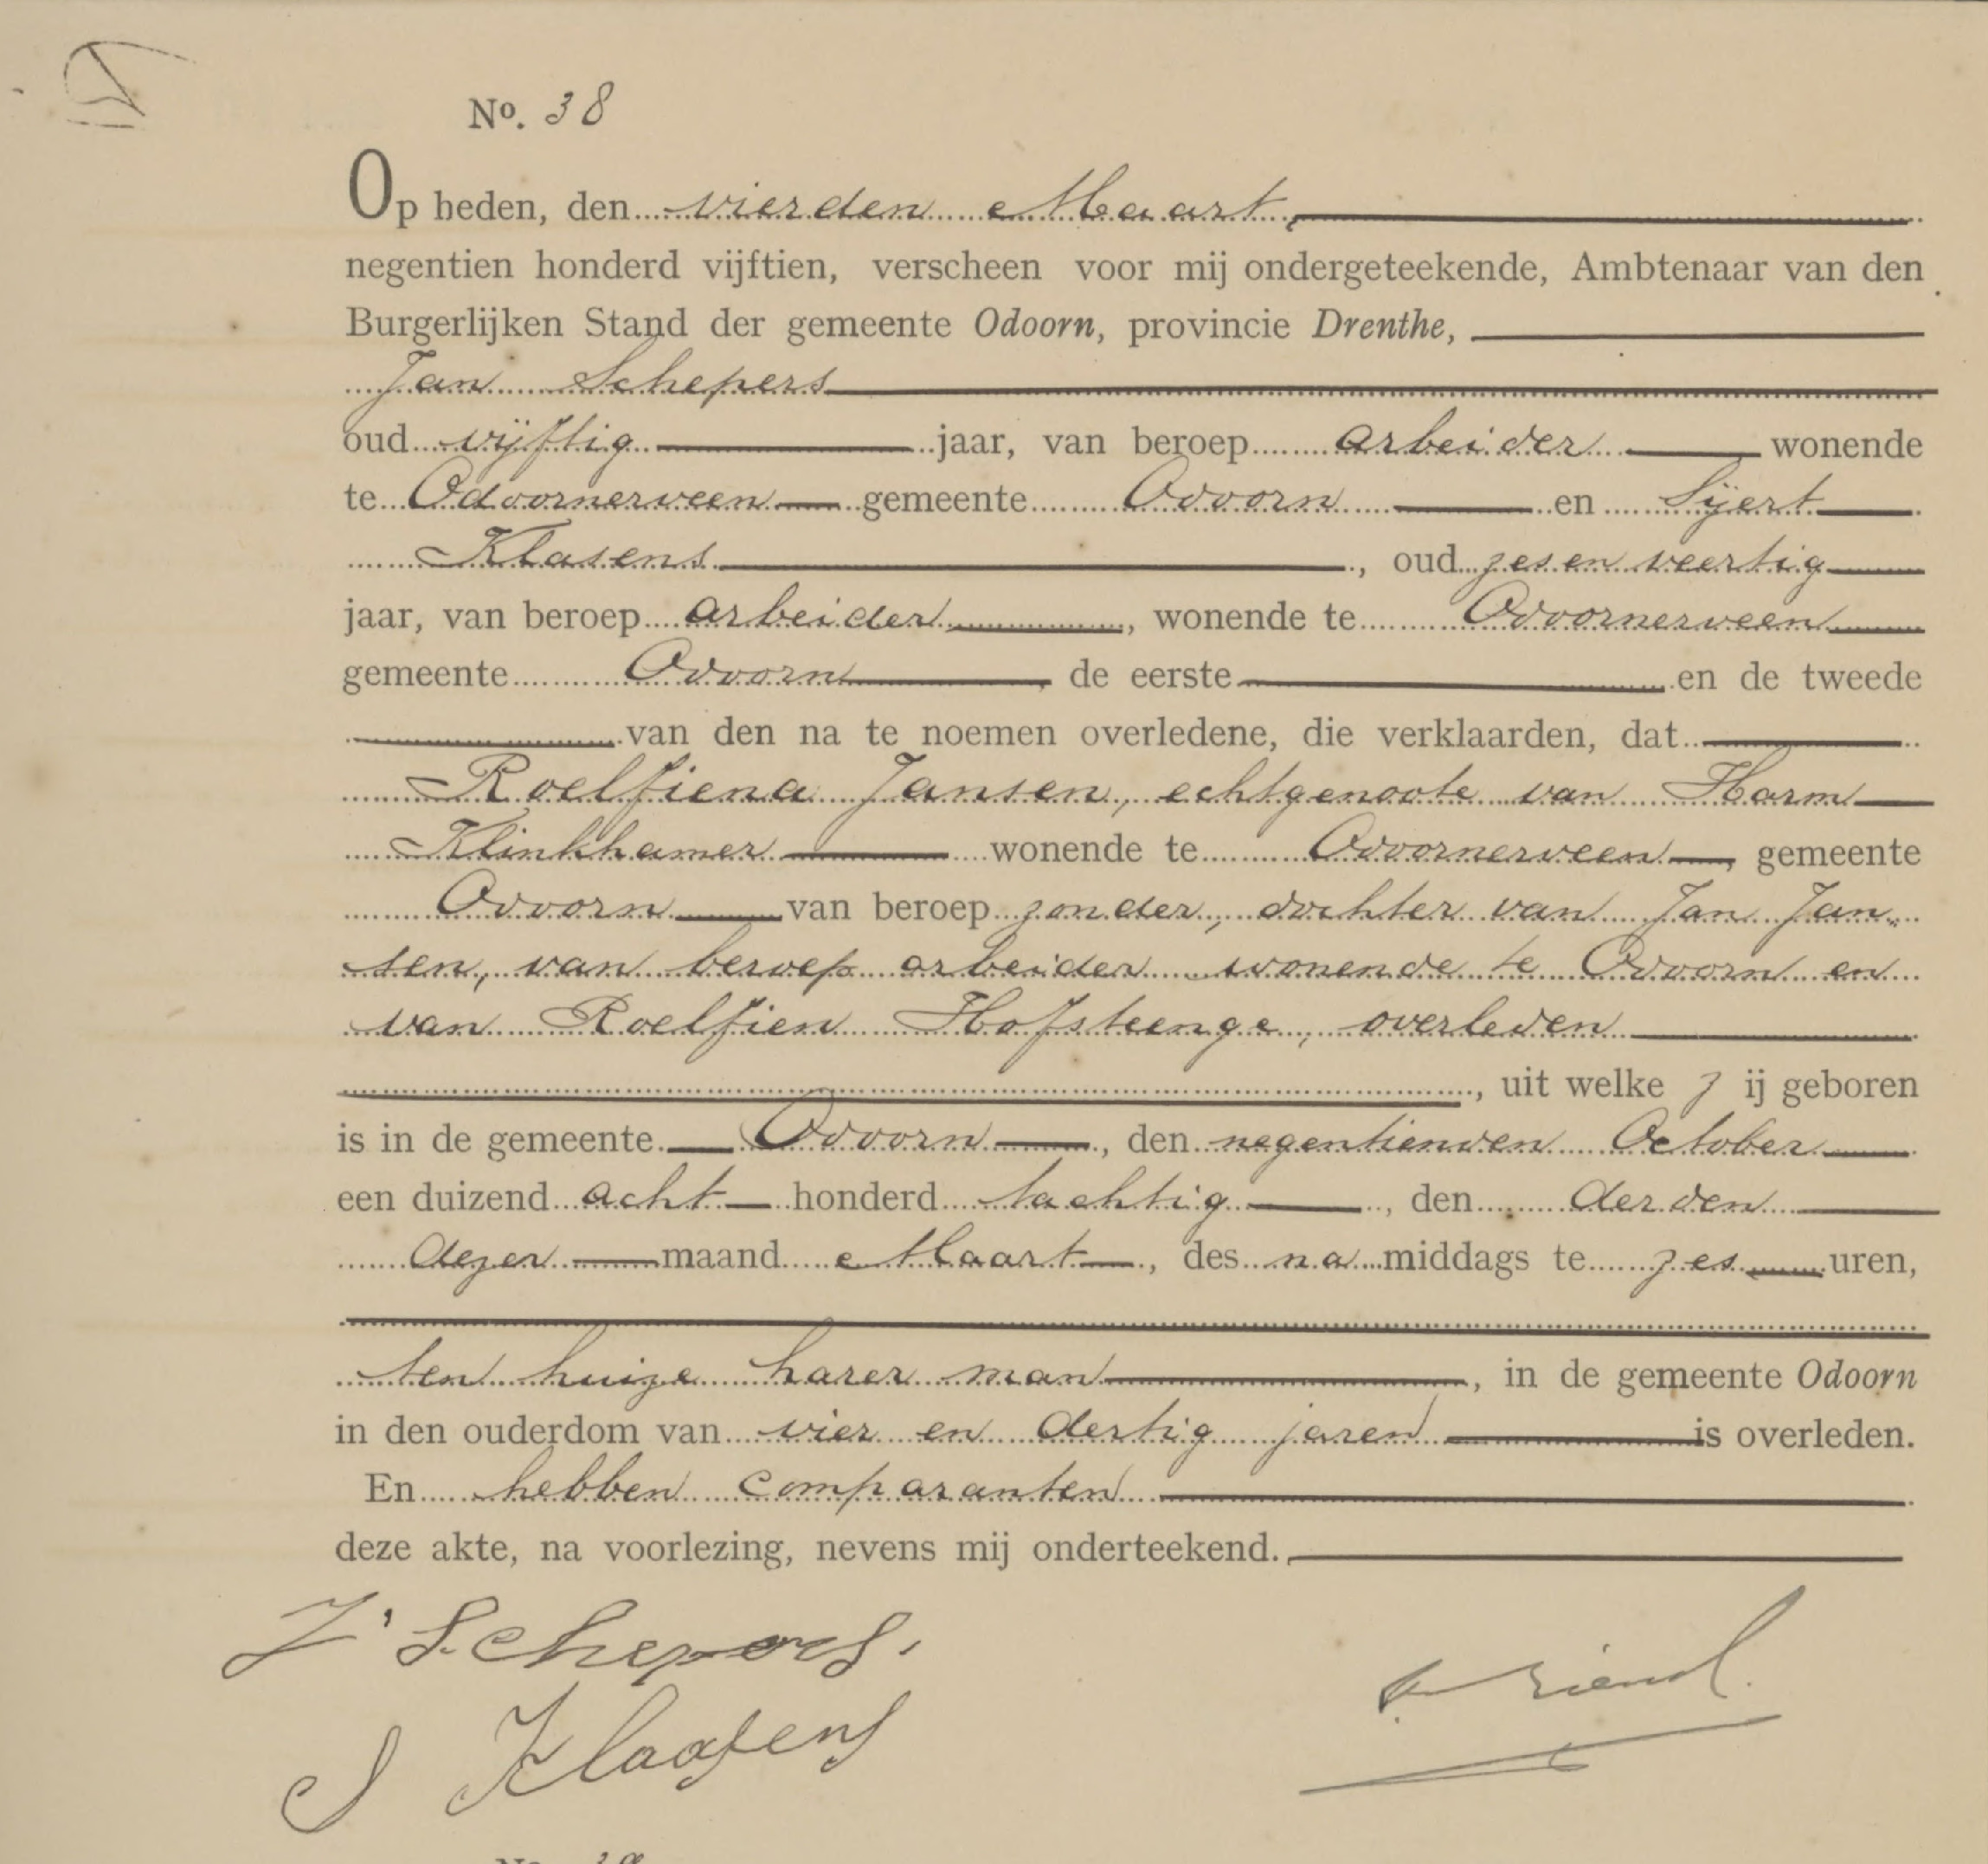 No. 38
Op heden, den vierden Maart,
negentien honderd vijftien, verscheen voor mij ondergeteekende, Ambtenaar van den
Burgerlijken Stand der gemeente Odoorn, provincie Drenthe,
Jan Schepers
oud vijftig jaar, van beroep arbeider wonende
te Odoornerveen gemeente Odoorn en Sijert
Klasens, oud zes en veertig
jaar, van beroep arbeider, wonende te Odoornerveen
gemeente Odoorn, de eerste en de tweede
van den na te noemen overledene, die verklaarden, dat
Roelfiena Jansen, echtgenoote van Harm
Klinkhamer wonende te Odoornerveen, gemeente
Odoorn van beroep zonder, dochter van Jan Jan-
sen, van beroep arbeider wonende te Odoorn en
van Roelfien Hofsteenge, overleden
, uit welke zij geboren
is in de gemeente Odoorn, den negentienden October
een duizend acht honderd tachtig, den derden
dezer maand Maart, des na middags te zes uren,
ten huize harer man, in de gemeente Odoorn
in den ouderdom van vier en dertig jaren is overleden.
En hebben comparanten
deze akte, na voorlezing, nevens mij onderteekend.
J. Schepers.
S Klaasens